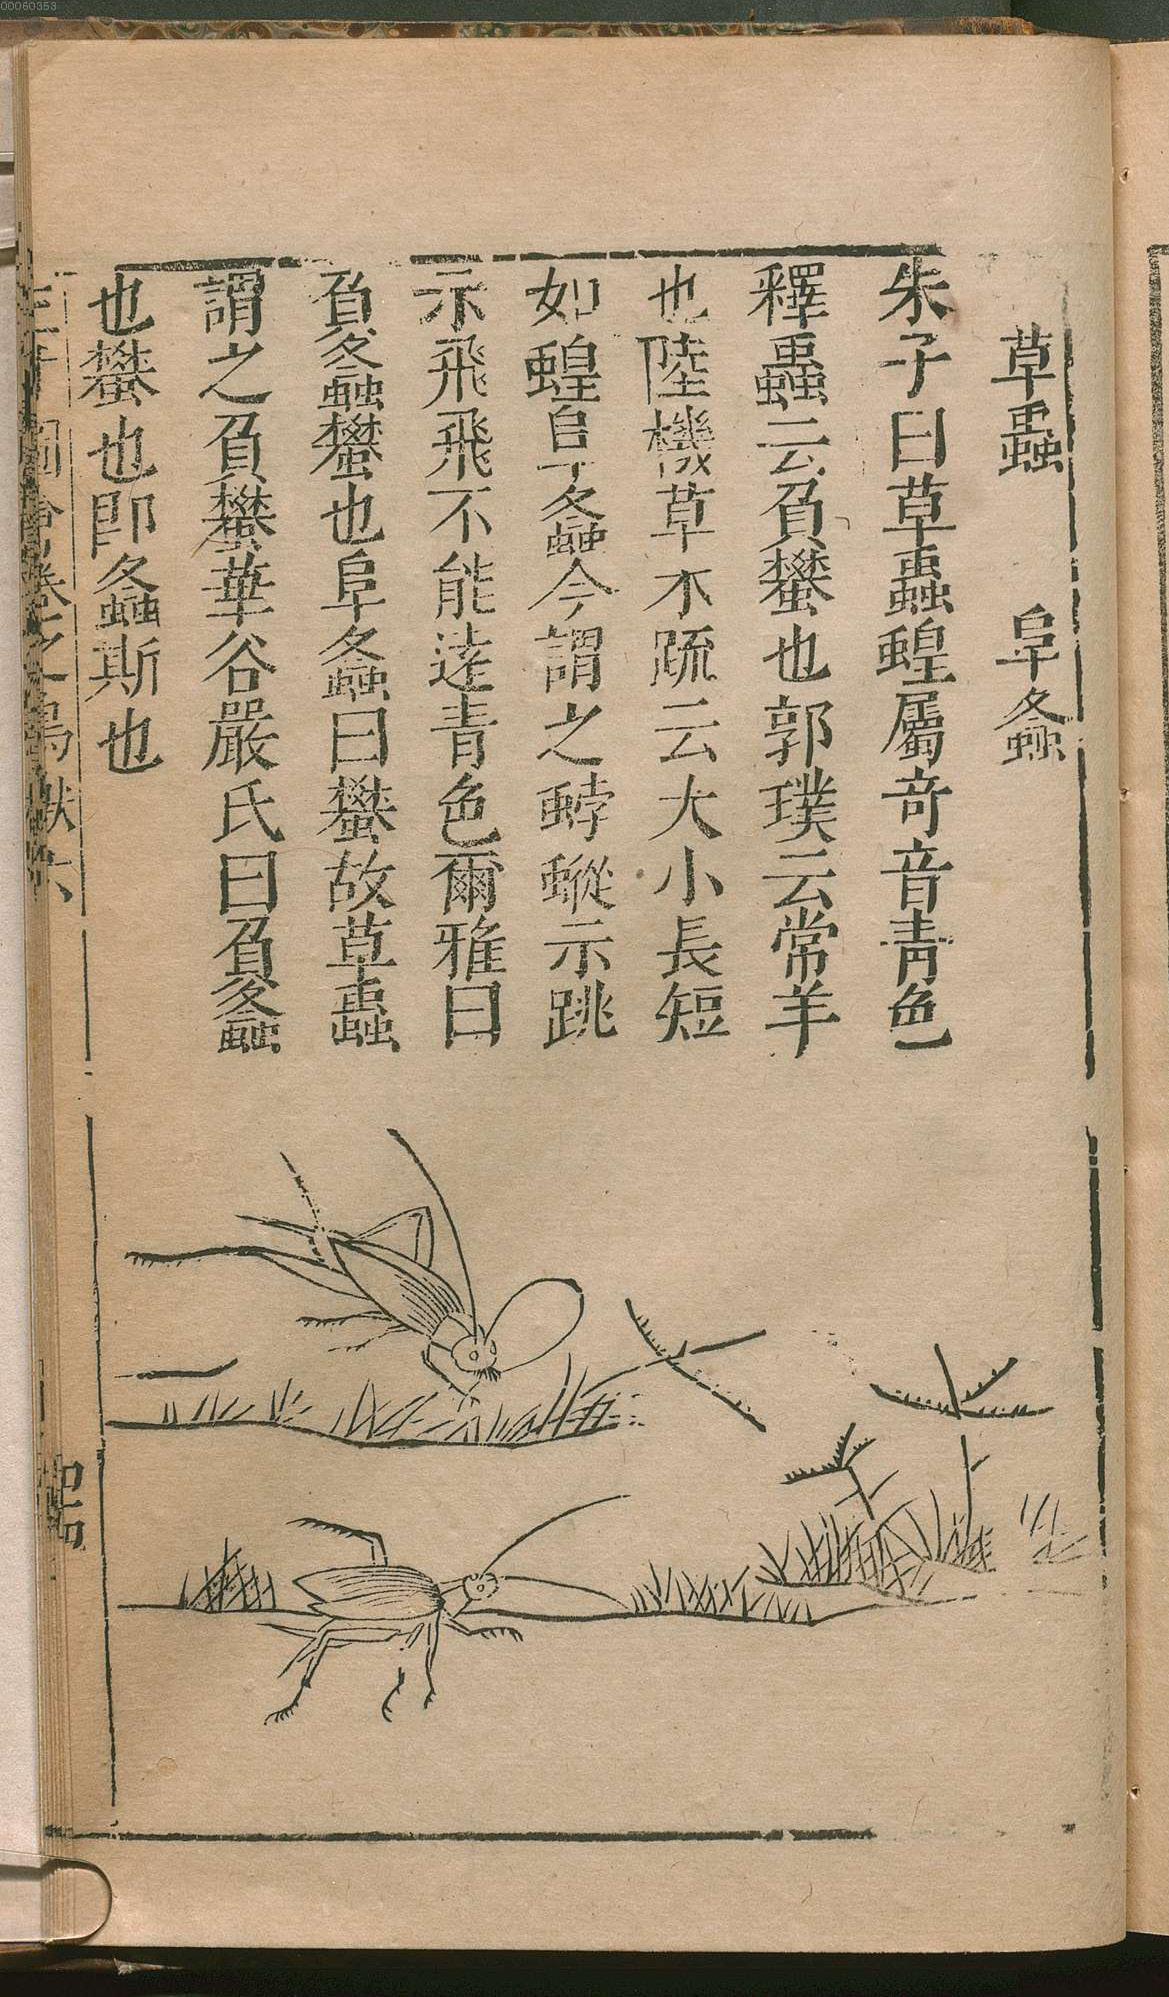 草蟲　阜螽
朱子曰草蟲蝗屬竒音青色
釋蟲云負蠜也郭璞云常羊
也陸機草木疏云大小長短
如蝗阜螽今謂之蝣䗥示跳
示飛飛不能逺青色爾雅曰
負螽蠜也阜螽曰蠜故草蟲
謂之負蠜華谷嚴氏曰負螽
也蠜也即螽斯也
圖會卷之鳥獸六
00060353